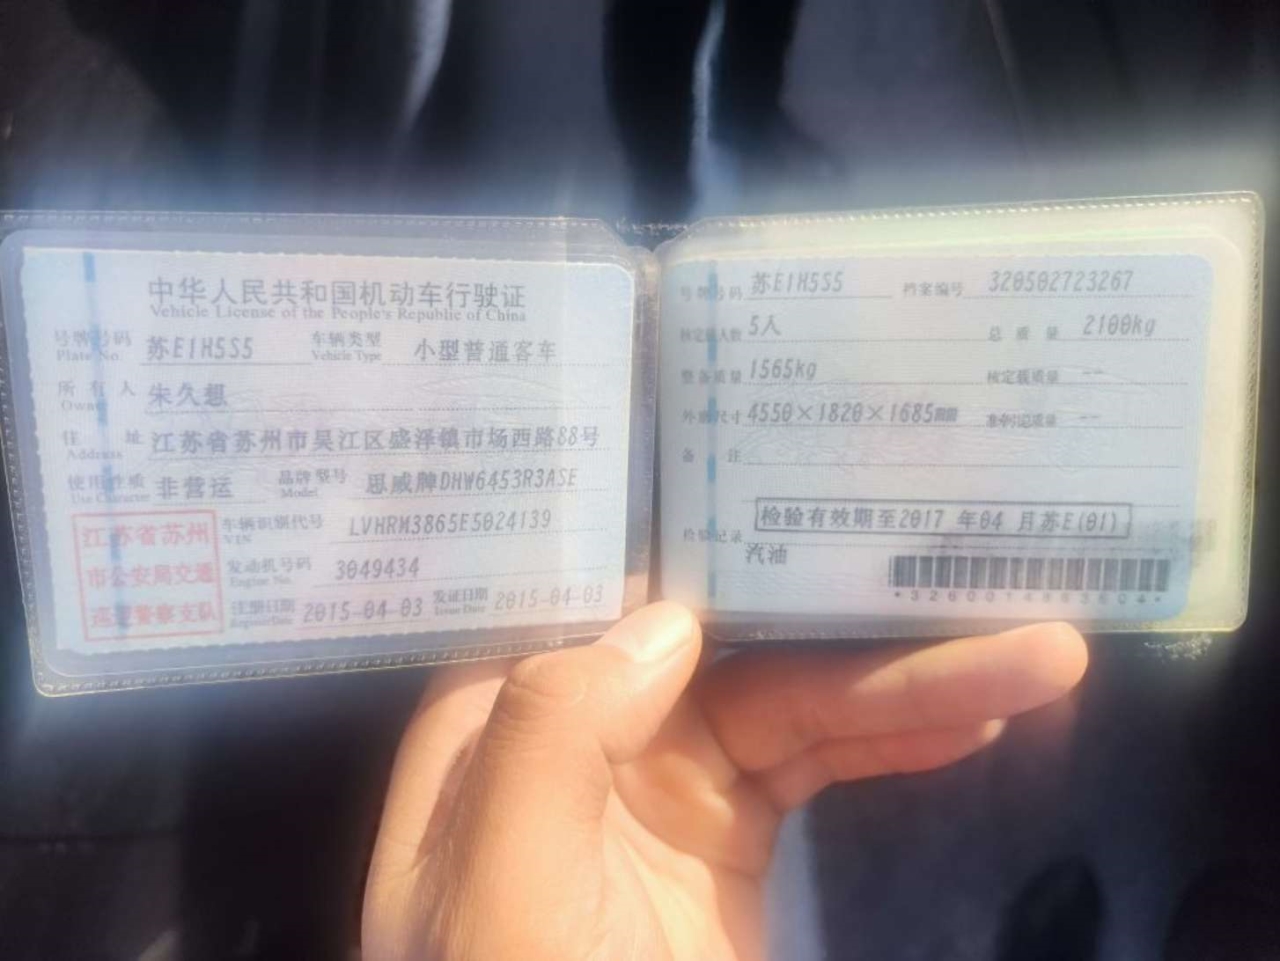 中华人民共和国机动车行驶证
Vehicle License of the People's Republic of China
号牌号码 Plate No. 苏E1H5S5 车辆类型 Vehicle Type 小型普通客车
所有人 Owner 朱久想
住址 Address 江苏省苏州市吴江区盛泽镇市场西路88号
使用性质 Use Character 非营运 品牌型号 Model 思威牌DHW6453R3ASE
车辆识别代号 VIN LVHRM3865E5024139
发动机号码 Engine No. 3049434
注册日期 Register Date 2015-04-03 发证日期 Issue Date 2015-04-03
江苏省苏州
市公安局交通
巡逻警察支队
号牌号码 苏E1H5S5 档案编号 320502723267
核定载人数 5人 总质量 2100kg
整备质量 1565kg 核定载质量 --
外廓尺寸 4550×1820×1685mm 准牵引总质量 --
备注
检验有效期至2017 年04 月苏E(01)
检验记录
汽油